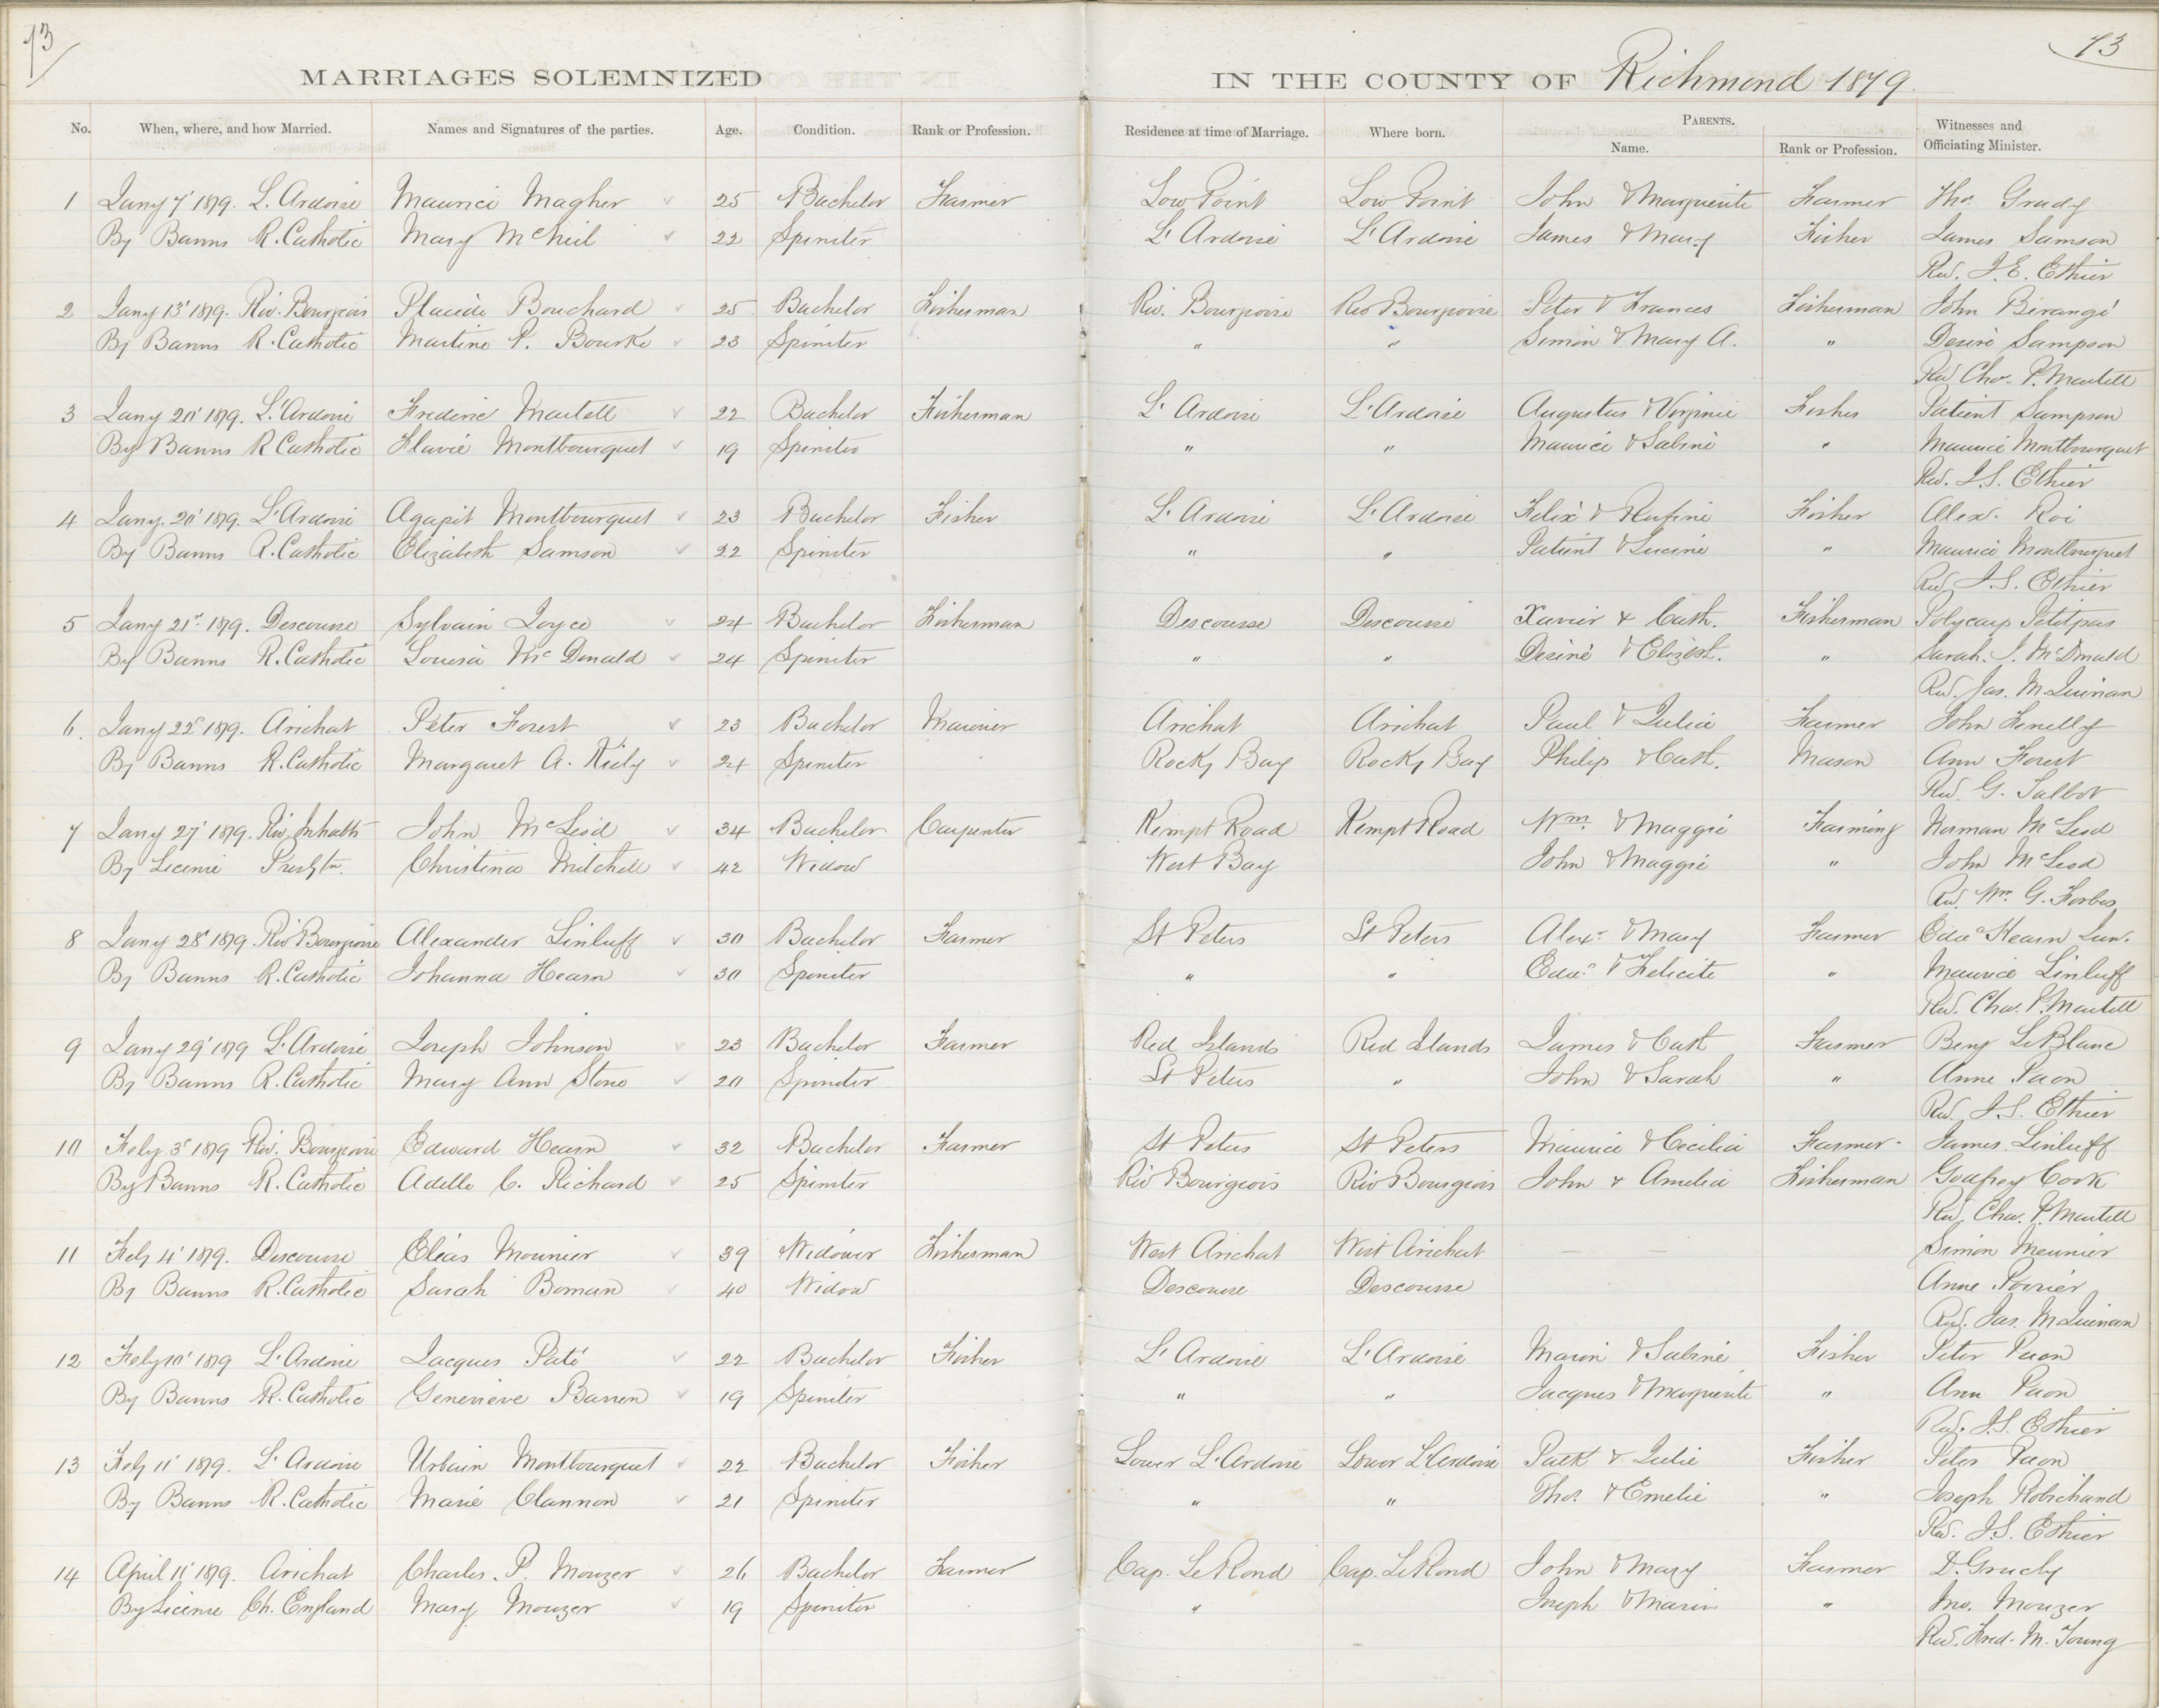 73
73
MARRIAGES SOLEMNIZED IN THE COUNTY OF Richmond 1879.
No. When, where, and how Married. Names and Signatures of the parties. Age. Condition. Rank or Profession. Residence at time of Marriage. Where born. PARENTS. Name. Rank or Profession. Witnesses and Officiating Minister.
1 Jany 7' 1879. L. Ardoise Maurice Magher 25 Bachelor Farmer Low Point Low Point John & Marguerite Farmer Thos. Grady
By Banns R. Catholic Mary McNeil 22 Spinster L'Ardoise L'Ardoise James & Mary Fisher James Samson
Rev. J. E. Ethier
2 Jany 13' 1879. Riv. Bourgeois Placide Bouchard 25 Bachelor Fisherman Riv. Bourgoise Riv Bourgoise Peter & Frances Fisherman John Birangé
By Banns R. Catholic Martine P. Bourke 23 Spinster " " Simon & Mary A. " Desiré Sampson
Rev Chas. P. Martell
3 Jany 20' 1879. L'Ardoise Frederic Martell 22 Bachelor Fisherman L'Ardoise L'Ardoise Augustus & Virginie Fisher Patient Sampson
By Banns R Catholic Flavie Montbourquet 19 Spinster " " Maurice & Sabine " Maurice Montbourquet
Rev. J. S. Ethier
4 Jany. 20' 1879. L'Ardoise Agapit Montbourquet 23 Bachelor Fisher L'Ardoise L'Ardoise Felix & Rufine Fisher Alex. Roi
By Banns R. Catholic Elizabeth Samson 22 Spinster " " Patient & Lucine " Maurice Montbourquet
Rev. J. S. Ethier
5 Jany 21st 1879. Descousse Sylvain Joyce 24 Bachelor Fisherman Descousse Descousse Xavier & Cath. Fisherman Polycarp Petitpas
By Banns R. Catholic Louisa McDonald 24 Spinster " " Desiré & Elizbt. " Sarah. J. McDonald
Rev. Jas. M. Quinan
6. Jany 22d 1879. Arichat Peter Forest 23 Bachelor Mariner Arichat Arichat Paul & Julia Farmer John
By Banns R. Catholic Margaret A. Kiely 24 Spinster Rocky Bay Rocky Bay Philip & Cath. Mason Ann Forest
Rev. G. Talbot
7 Jany 27' 1879. Riv. Inhabts John McLeod 34 Bachelor Carpenter Kempt Road Kempt Road Wm. & Maggie Farming Norman McLeod
By License Presbtn. Christina Mitchell 42 Widow West Bay John & Maggie " John McLeod
Rev. Wm. G. Forbes
8 Jany 28' 1879. Riv Bourgoise Alexander Linluff 30 Bachelor Farmer St Peters St Peters Alexr & Mary Farmer Edwd Hearn Jun.
By Banns R. Catholic Johanna Hearn 30 Spinster " " Edwd & Felicite " Maurice Linluff
Rev. Chas. P. Martell
9 Jany 29' 1879 L'Ardoise Joseph Johnson 23 Bachelor Farmer Red Islands Red Islands James & Cath Farmer Benj LeBlanc
By Banns R. Catholic Mary Ann Stone 20 Spinster St Peters " John & Sarah " Anne Paon
Rev. J. S. Ethier
10 Feby 3' 1879 Riv. Bourgoise Edward Hearn 32 Bachelor Farmer St Peters St Peters Maurice & Cecilia Farmer James Linluff
By Banns R. Catholic Adelle C. Richard 25 Spinster Riv Bourgeois Riv Bourgeois John & Amelia Fisherman Godfrey Cook
Rev. Chas. P. Martell
11 Feby 4' 1879. Descousse Elias Mounier 39 Widower Fisherman West Arichat West Arichat Simon Meunier
By Banns R. Catholic Sarah Boman 40 Widow Descousse Descousse Anne Poirier
Rev. Jas. M Quinan
12 Feby 10' 1879 L'Ardoise Jacques Paté 22 Bachelor Fisher L'Ardoise L'Ardoise Marin & Sabine Fisher Peter Paon
By Banns R. Catholic Genevieve Barren 19 Spinster " " Jacques & Marguerite " Ann Paon
Rev. J. S. Ethier
13 Feby 11' 1879. L'Ardoise Urbain Montbourquet 22 Bachelor Fisher Lower L'Ardoise Lower L'Ardoise Patk & Julie Fisher Peter Paon
By Banns R. Catholic Marie Clannon 21 Spinster " " Thos. & Emelie " Joseph Robichaud
Rev. J. S. Ethier
14 April 11' 1879. Arichat Charles. P. Mouzer 26 Bachelor Farmer Cap. LeRond Cap. LeRond John & Mary Farmer D. Gruchy
By License Ch. England Mary Mouzer 19 Spinster " Joseph & Marin " Jno. Mouzer
Rev. Fred. M. Young